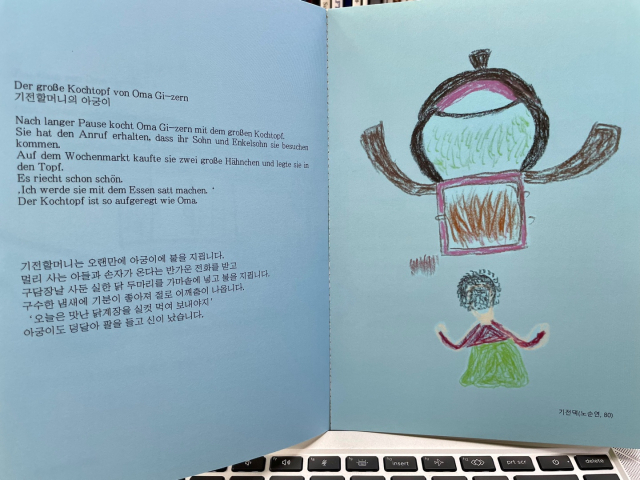 Der große Kochtopf von Oma Gi-zern
기전할머니의 아궁이
Nach langer Pause kocht Oma Gi-zern mit dem großen Kochtopf.
Sie hat den Anruf erhalten, dass ihr Sohn und Enkelsohn sie besuchen
kommen.
Auf dem Wochenmarkt kaufte sie zwei große Hähnchen und legte sie in
den Topf.
Es riecht schon schön.
‚Ich werde sie mit dem Essen satt machen. ‘
Der Kochtopf ist so aufgeregt wie Oma.
기전할머니는 오랜만에 아궁이에 불을 지핍니다.
멀리 사는 아들과 손자가 온다는 반가운 전화를 받고
구담장날 사둔 실한 닭 두마리를 가마솥에 넣고 불을 지핍니다.
구수한 냄새에 기분이 좋아져 절로 어깨춤이 나옵니다.
‘오늘은 맛난 닭계장을 실컷 먹여 보내야지’
아궁이도 덩달아 팔을 들고 신이 났습니다.
기전댁(노순연, 80)
insert
prt scr
delete